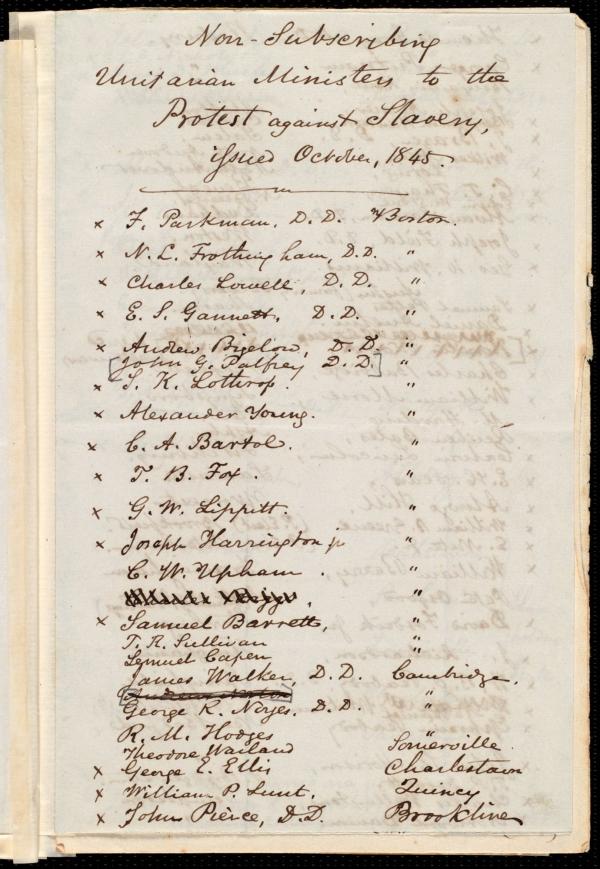 Non-Subscribing
Unitarian Ministers to the
Protest against Slavery,
issued October, 1845.
x F. Parkman, D.D. Boston.
x N. L. Frothingham, D.D. "
x Charles Lowell, D.D. "
x E. S. Gannett, D.D. "
x Andrew Bigelow, D.D. "
[John G. Palfrey D.D.] "
x S. K. Lothrop. "
x Alexander Young. "
x C. A. Bartol. "
x T. B. Fox. "
x G. W. Lippitt. "
x Joseph Harrington jr "
C. W. Upham. "
"
x Samuel Barrett, "
T. R. Sullivan "
Lemuel Capen "
James Walker, D.D. Cambridge.
[Andrews Norton] "
George R. Noyes, D.D. "
R. M. Hodges Somerville.
Theodore Wailand
x George E. Ellis Charlestown
x William P. Lunt. Quincy
x John Pierce, D.D. Brookline